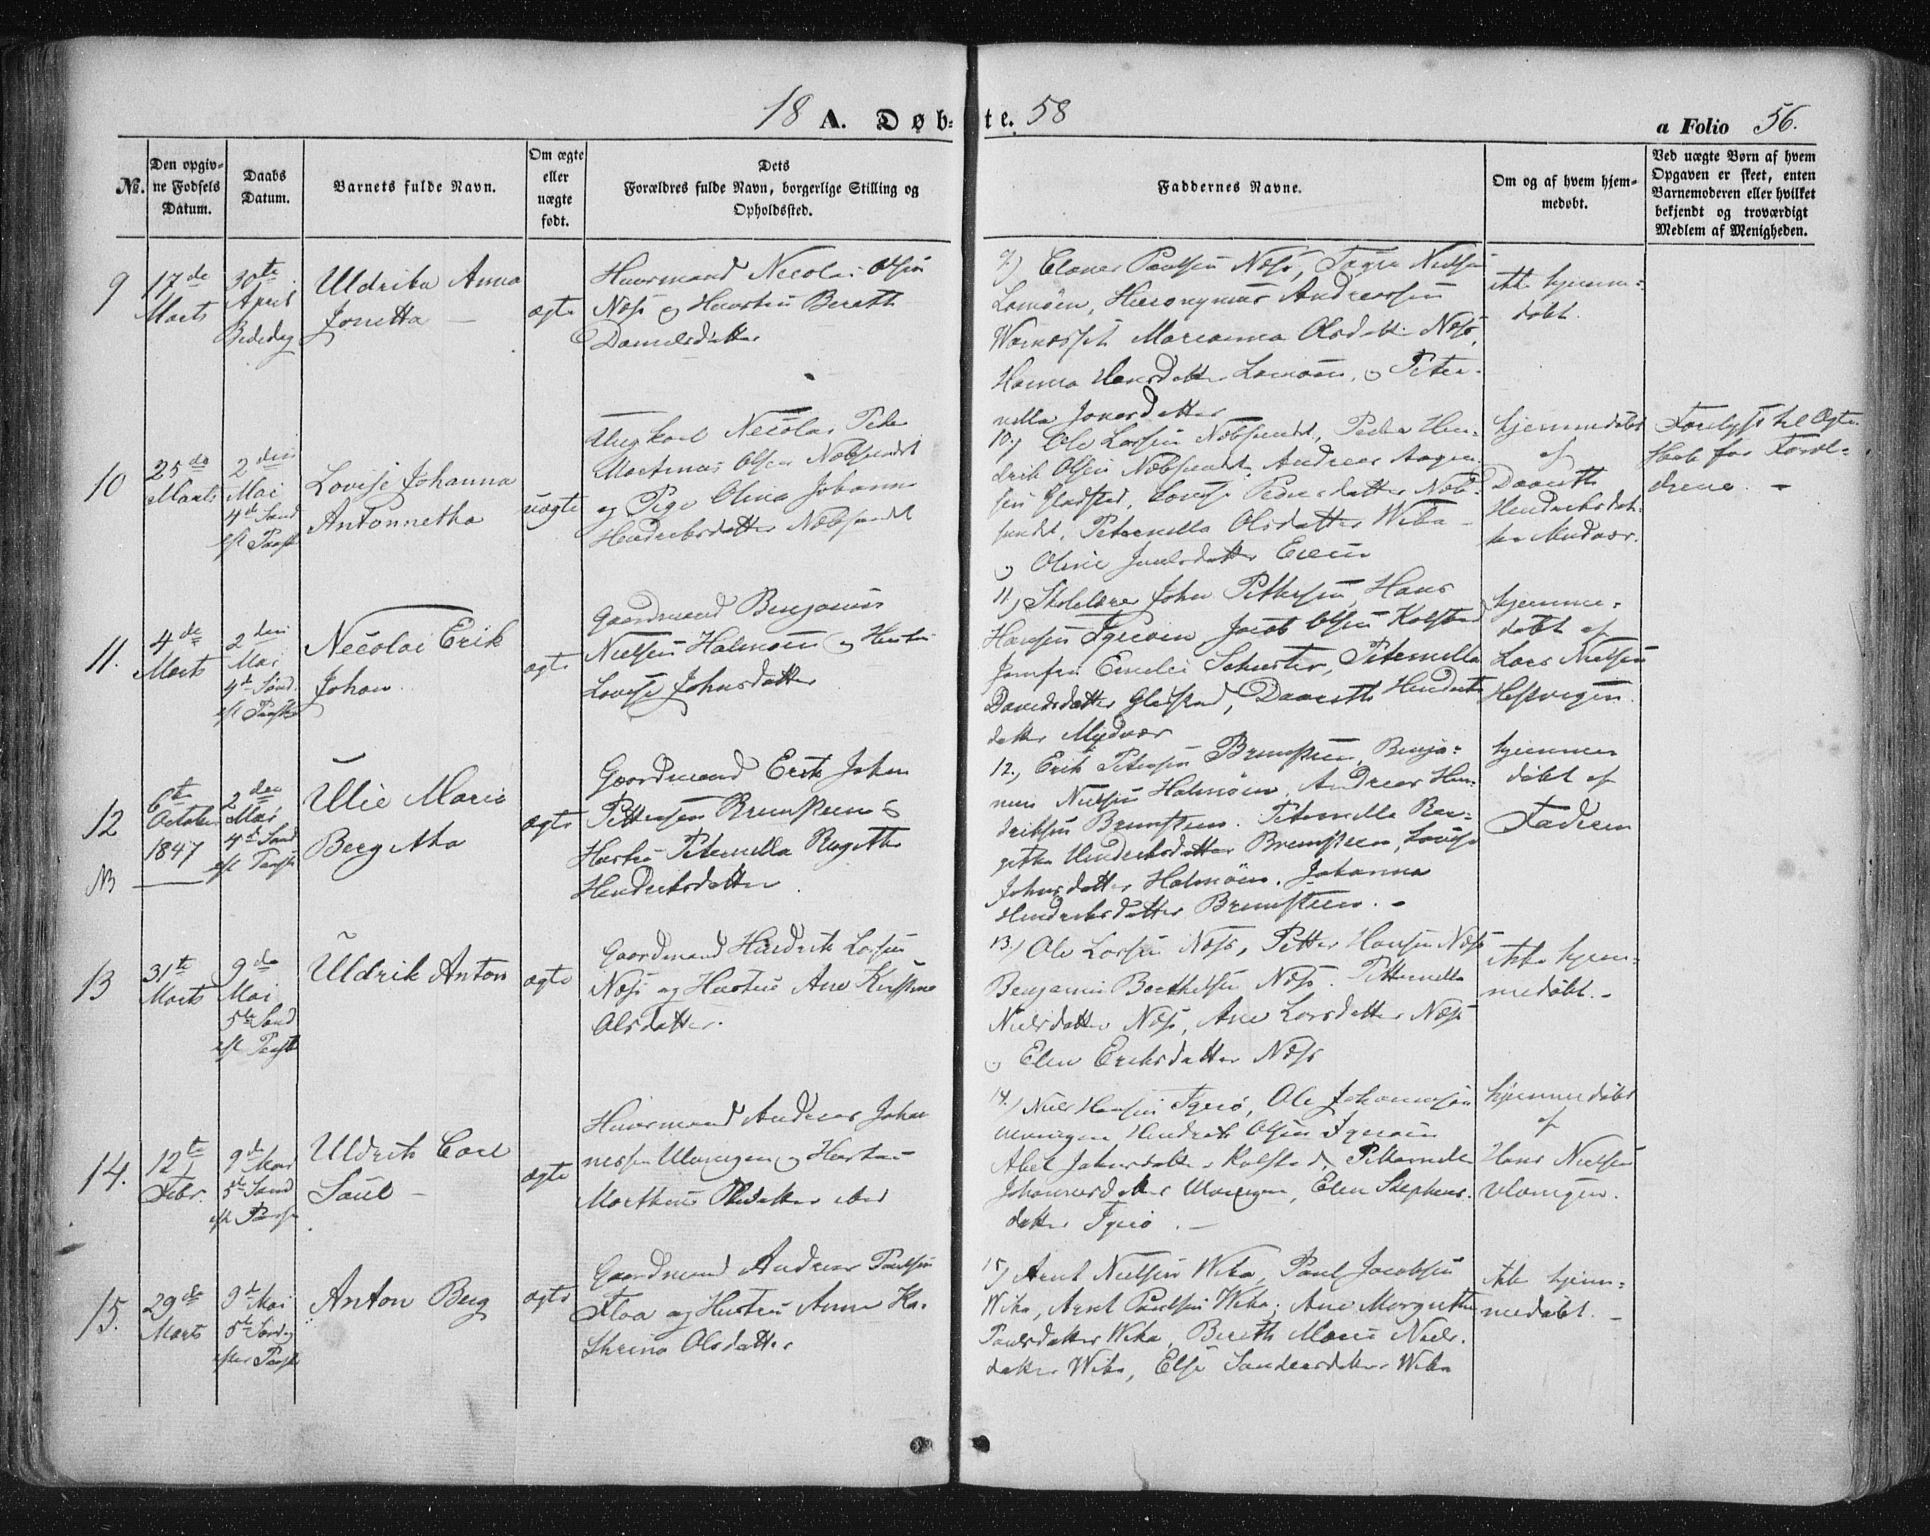 18 A. Døbte. 58
a Folio 56.
No.
Den opgivne Fødsels Datum.
Daabs Datum.
Barnets fulde Navn.
Om ægte eller uægte født.
Dets Forældres fulde Navn, borgerlige Stilling og Opholdssted.
Faddernes Navne.
Om og af hvem hjemmedøbt.
Ved uægte Børn af hvem Opgaven er skeet, enten Barnemoderen eller hvilket bekjendt og troværdigt Medlem af Menigheden.
9
17de Marts
30te April Bededag
Uldrika Anna
Jonetta
ægte
Huusmand Necolai Olsen
Næss og Hustru Bereth
Danielsdatter
Paulsen Næss,
Hieronymus Andreassen
Marianna Olsdatter Næss,
Hanna Hansdatter
nella Jonasdatter
ikke hjemmedøbt.
10
25de Marts
2den Mai 4de Sønd eft Paaske
Lovise Johanna
Antonnetha
uægte
Ungkarl Necolai Peder
Martinus Olsen Næbsundet
og Pige Olina Johanna
Hendriksdatter Næbsundet
10) Ole Larsen Næbsundet, Peder Hendrik
Olsen Næbsundet, Andreas Aagesen
Gladstad, Lovise Pedersdatter
Petternella Olsdatter
og Oline
hjemmedøbt
af
Daareth
Hendriksdatter
11.
4de Marts
2den Mai 4de Sønd. eft Paaske
Necolai Erik
Johan
ægte
Gaardmand Benjamin
Nielsen Halmøen og Hustru
Lovise Johnsdatter
11) Skolelærer John Pettersen, Hans
Hansen Jacob Olsen Kolstad
Jomfru Emelie Petternella
Davidsdatter Gladstad, Daareth Hendriks
datter
hjemmedøbt
af
Lars Nielsen
12
NB
6te October 1847
2den Mai 4de Sønd eft Paaske
Ulie Marie
Bergitha
ægte
Gaardmand Erik Johan
Pettersen Bremsteen &
Hustru Petternella Regitha
Hendriksdatter
12.) Erik Petersen Bremsteen, Benja-
min Nielsen Halmøen, Andreas Hen-
driksen Bremsteen. Petternella
Hendriksdatter Bremsteen, Lovise
Johnsdatter Halmøen. Johanna
Hendriksdatter Bremsteen. -
hjemme
døbt af
Faderen
13
31te Marts
9de Mai 5te Sønd eft Paaske
Uldrik Anton
ægte
Gaardmand Hendrik Larsen
Næss og Hustru Ane Kirstine
Olsdatter.
13) Ole Larsen Næss, Petter Hansen Næss
Benjamin Berthelsen Næss. Petternella
Nielsdatter Næss, Ane Larsdatter Næss
og Elen Eriksdatter Næss
ikke hjem-
medøbt. -
14.
12te Febr.
9de Mai 5te Sønd eft Paaske
Uldrik Carl
Saul -
ægte
Huusmand Andreas Johan
nessen og Hustru
Marthea
14.) Niels Hansen Ole Johannesen
Hendrik Olsen
Abel Johnsdatter Kolstad, Petternella
Johannesdatter Elen Stephens
datter
hjemmedøbt
af
Hans Nielsen
15.
29de Marts
9de Mai 5te Søndag efter Paaske
Anton Berg
ægte
Gaardmand Andreas Paulsen
Floa og Hustru Anne Ka-
thrina Olsdatter
15) Arnt Nielsen Wika, Paul Jacobsen
Wika, Arnt Paulsen Wika. Ane Margrethe
Paulsdatter Wika, Bereth Marie Niels-
datter Wika, Else Sandersdatter Wika
ikke hjem-
medøbt. -